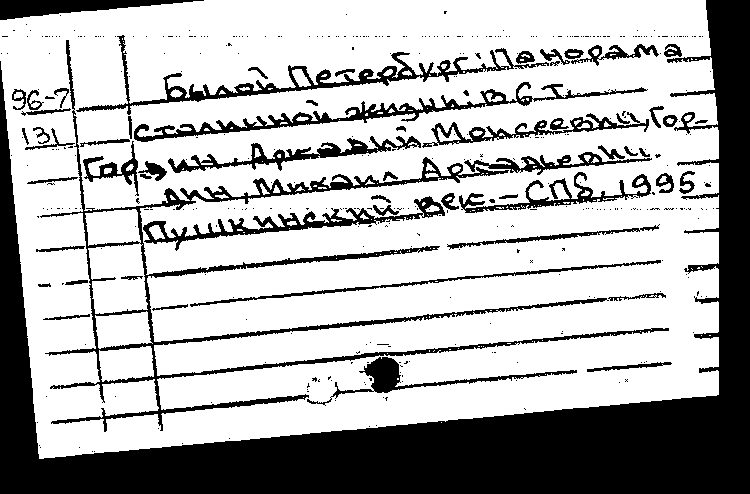 Былой Петербург: Панорама
96-7 столичной жизни: в 6 т.
131
Гордин, Аркадий Моисеевич, Гор-
дин, Михаил Аркадьевич.
Пушкинский век. – СПб, 1995.